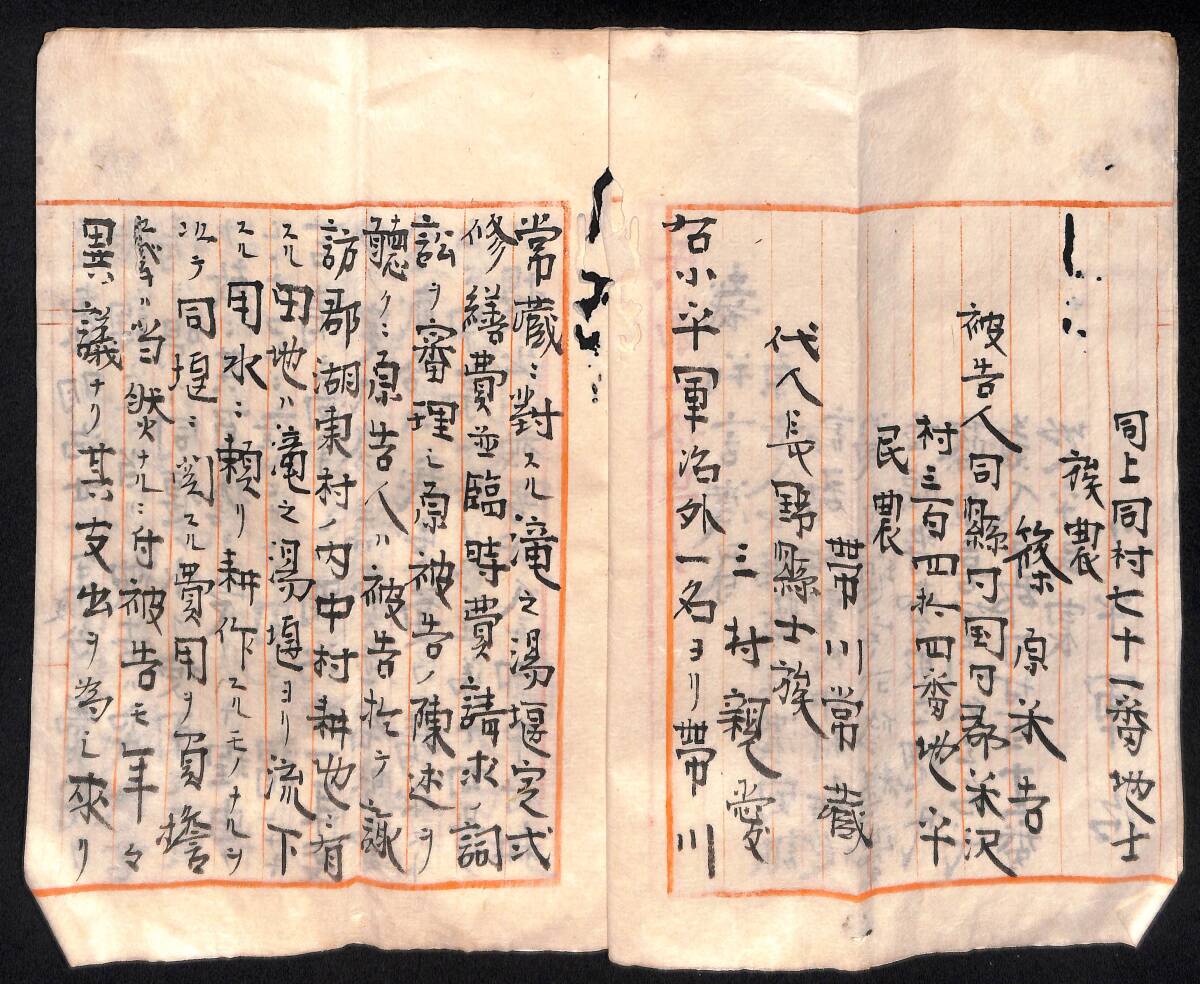 同上同村七十一番地士
族農
篠原米吉
被告人同縣同国同郡米沢
村三百四拾四番地平
民農
帯川常蔵
代人長野縣士族
三村親愛
右小平軍治外一名ヨリ帯川
常蔵ニ對スル滝之湯堰定式
修繕費並臨時費請求ノ詞
訟ヲ審理シ原被告ノ陳述ヲ
聽クニ原告人ハ被告於テ諏
訪郡湖東村ノ内中村耕地ニ有
スル田地ハ滝之湯堰ヨリ流下
スル用水ニ頼リ耕作スルモノナルヲ
以テ同堰ニ関スル費用ヲ負擔
ハ当然ナルニ付被告モ年々
異議ナリ其支出ヲ為シ來リ